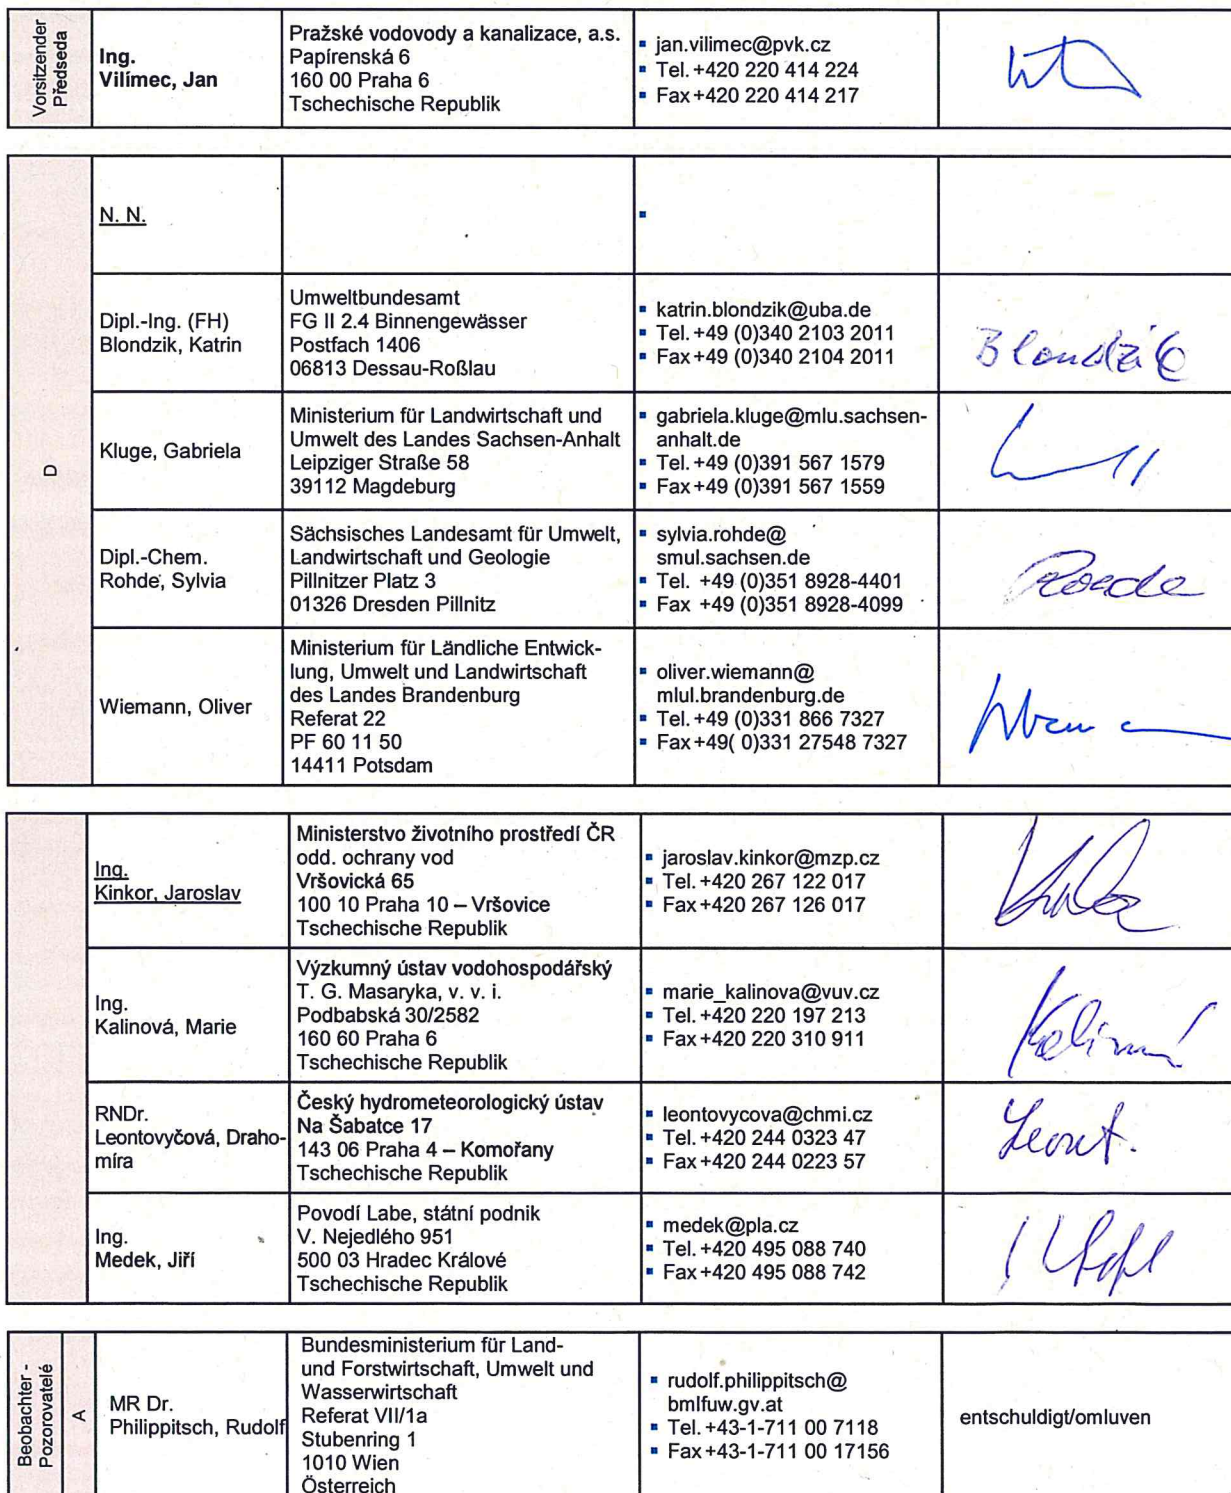 Vorsitzender
Předseda
Ing.
Vilímec, Jan
Pražské vodovody a kanalizace, a.s.
Papírenská 6
160 00 Praha 6
Tschechische Republik
▪ jan.vilimec@pvk.cz
▪ Tel. +420 220 414 224
▪ Fax +420 220 414 217
D
N. N.
▪
Dipl.-Ing. (FH)
Blondzik, Katrin
Umweltbundesamt
FG II 2.4 Binnengewässer
Postfach 1406
06813 Dessau-Roßlau
▪ katrin.blondzik@uba.de
▪ Tel. +49 (0)340 2103 2011
▪ Fax +49 (0)340 2104 2011
Blondzik
Kluge, Gabriela
Ministerium für Landwirtschaft und
Umwelt des Landes Sachsen-Anhalt
Leipziger Straße 58
39112 Magdeburg
▪ gabriela.kluge@mlu.sachsen-
anhalt.de
▪ Tel. +49 (0)391 567 1579
▪ Fax +49 (0)391 567 1559
Dipl.-Chem.
Rohde, Sylvia
Sächsisches Landesamt für Umwelt,
Landwirtschaft und Geologie
Pillnitzer Platz 3
01326 Dresden Pillnitz
▪ sylvia.rohde@
smul.sachsen.de
▪ Tel. +49 (0)351 8928-4401
▪ Fax +49 (0)351 8928-4099
Wiemann, Oliver
Ministerium für Ländliche Entwick-
lung, Umwelt und Landwirtschaft
des Landes Brandenburg
Referat 22
PF 60 11 50
14411 Potsdam
▪ oliver.wiemann@
mlul.brandenburg.de
▪ Tel. +49 (0)331 866 7327
▪ Fax +49( 0)331 27548 7327
Ing.
Kinkor, Jaroslav
Ministerstvo životního prostředí ČR
odd. ochrany vod
Vršovická 65
100 10 Praha 10 – Vršovice
Tschechische Republik
▪ jaroslav.kinkor@mzp.cz
▪ Tel. +420 267 122 017
▪ Fax +420 267 126 017
Ing.
Kalinová, Marie
Výzkumný ústav vodohospodářský
T. G. Masaryka, v. v. i.
Podbabská 30/2582
160 60 Praha 6
Tschechische Republik
▪ marie_kalinova@vuv.cz
▪ Tel. +420 220 197 213
▪ Fax +420 220 310 911
RNDr.
Leontovyčová, Draho-
míra
Český hydrometeorologický ústav
Na Šabatce 17
143 06 Praha 4 – Komořany
Tschechische Republik
▪ leontovycova@chmi.cz
▪ Tel. +420 244 0323 47
▪ Fax +420 244 0223 57
Leont.
Ing.
Medek, Jiří
Povodí Labe, státní podnik
V. Nejedlého 951
500 03 Hradec Králové
Tschechische Republik
▪ medek@pla.cz
▪ Tel. +420 495 088 740
▪ Fax +420 495 088 742
Beobachter -
Pozorovatelé
A
MR Dr.
Philippitsch, Rudolf
Bundesministerium für Land-
und Forstwirtschaft, Umwelt und
Wasserwirtschaft
Referat VII/1a
Stubenring 1
1010 Wien
Österreich
▪ rudolf.philippitsch@
bmlfuw.gv.at
▪ Tel. +43-1-711 00 7118
▪ Fax +43-1-711 00 17156
entschuldigt/omluven